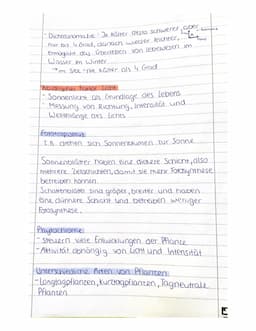 - Dichteanomalie: Je kälter desto schwerer, aber
nur bis 4 Grad, danach wieder leichter,
ermöglicht das Überleben von Lebewesen im
Wasser im Winter
→ im See nie kälter als 4 Grad
Abiotischer Faktor Licht:
- Sonnenlicht als Grundlage des Lebens
- Messung von Richtung, Intensität und
Wellenlänge des Lichts
Fototropismus:
z.B. drehen sich Sonnenblumen zur Sonne
Sonnenblätter haben eine dickere Schicht, also
mehrere Zellschichten, damit sie mehr Fotosynthese
betreiben können.
Schattenblätter sind größer, breiter und haben
eine dünnere Schicht und betreiben weniger
Fotosynthese.
Phytochrome:
- steuern viele Entwicklungen der Pflanze
- Aktivität abhängig von Licht und Intensität
Unterschiedliche Arten von Pflanzen:
- Langtagpflanzen, Kurztagpflanzen, Tagneutrale
Pflanzen